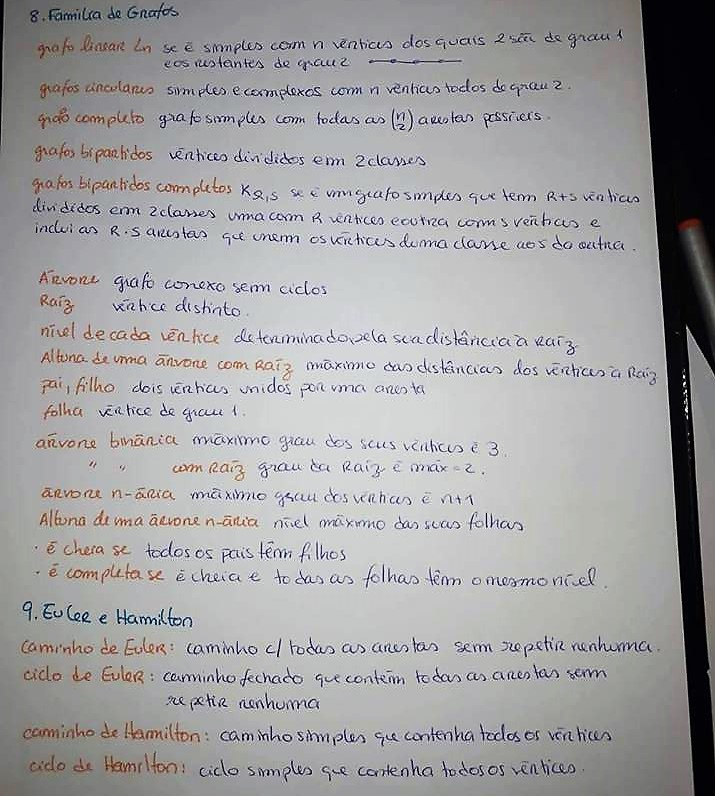 8. Familia de Grafos
grafo linear Ln se é simples com n vértices dos quais 2 são de grau 1
e os restantes de grau 2
grafos circulares simples e complexos com n vértices todos de grau 2.
grafo completo grafo simples com todas as (n 2) arestas possíveis.
grafos bipartidos vértices divididos em 2 classes
grafos bipartidos completos KR,S se é um grafo simples que tem R+S vértices
divididos em 2 classes uma com R vértices e outra com s vértices e
inclui as R.S arestas que unem os vértices duma classe aos da outra.
Árvore grafo conexo sem ciclos
Raíz vértice distinto.
nível de cada vértice determinado pela sua distância à raíz
Altura de uma árvore com Raíz máximo das distâncias dos vértices à Raíz
pai, filho dois vértices unidos por uma aresta
folha vértice de grau 1.
árvore binária máximo grau dos seus vértices é 3.
" " com Raíz grau da Raíz é máx = 2.
árvore n-ária máximo grau dos vértices é n+1
Altura de uma árvore n-ária nível máximo das suas folhas
· é cheia se todos os pais têm filhos
· é completa se é cheia e todas as folhas têm o mesmo nível.
9. Euler e Hamilton
caminho de Euler: caminho c/ todas as arestas sem repetir nenhuma.
ciclo de Euler: caminho fechado que contém todas as arestas sem
repetir nenhuma
caminho de Hamilton: caminho simples que contenha todos os vértices
ciclo de Hamilton: ciclo simples que contenha todos os vértices.